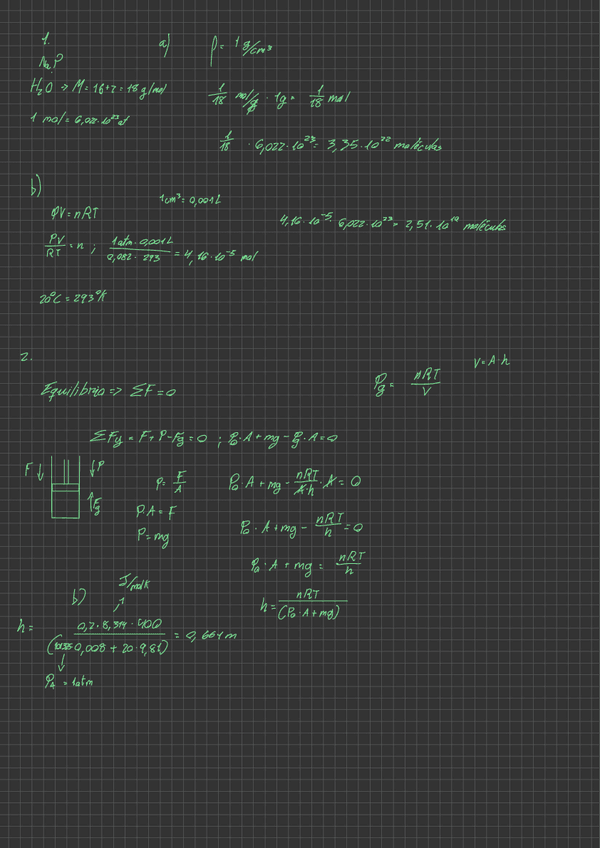 1.
a)
ρ = 1 g/cm³
Na?
H₂O => M = 16+2 = 18 g/mol
1/18 mol/g · 1g = 1/18 mol
1 mol = 6,022·10²³
1/18 · 6,022·10²³ = 3,35·10²² moléculas
b)
1cm³ = 0,001L
PV = nRT
4,16·10⁻⁵· 6,022·10²³ = 2,51·10¹⁹ moléculas
PV/RT = n ; 1atm · 0,001L / 0,082 · 293 = 4,16·10⁻⁵ mol
20°C = 293°K
2.
V = A·h
Equilibrio => ΣF = 0
Pg = nRT/V
ΣFy = F + P - Fg = 0 ; P₀·A + mg - Pg·A = 0
F P
Fg
P = F/A
P₀·A + mg - nRT/A·h · A = 0
P·A = F
P = mg
P₀·A + mg - nRT/h = 0
P₀·A + mg = nRT/h
h = nRT/(P₀·A + mg)
J/molK
b)
h = 0,2·8,314·400 / ( 0,008 + 20·9,81) = 0,661 m
= 1atm